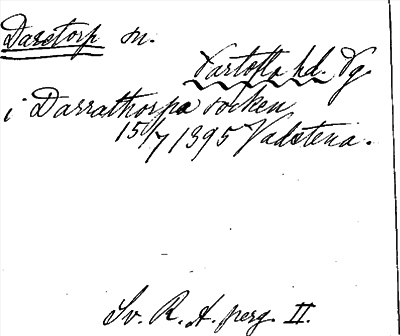 Darstorp sn.
Vartofta hd. Vg.
i Darrathorpa socken
15/7 1395 Vadstena.
Sv. R. A. perg. II.